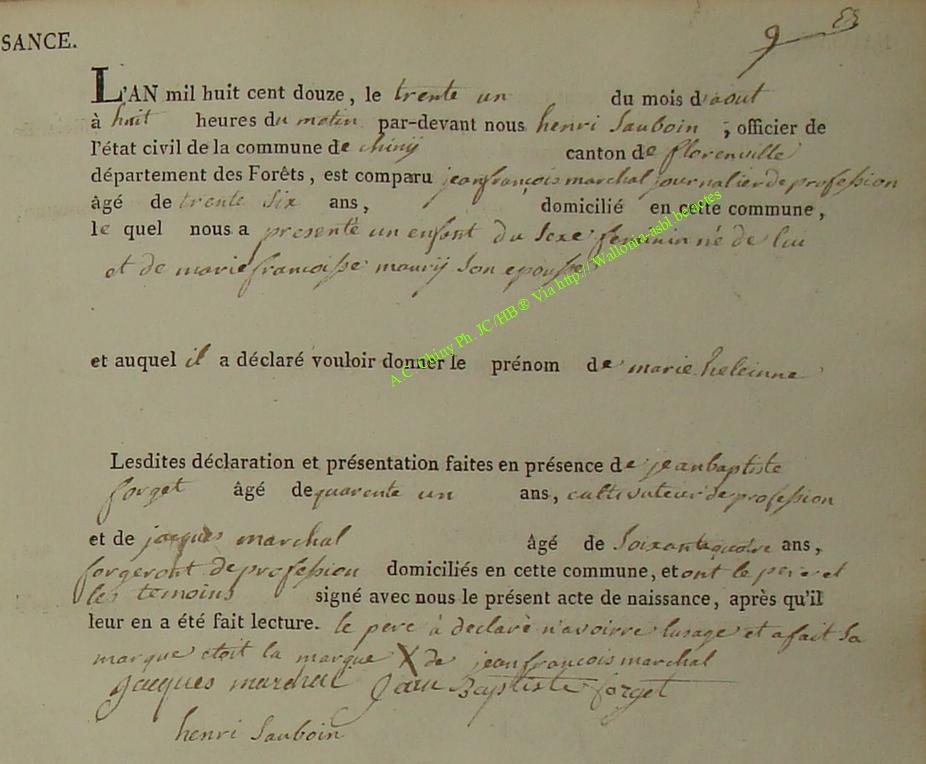 SANCE.
9
L'AN mil huit cent douze, le trente un du mois d'aout
à huit heures du matin par-devant nous henri Sauboin, officier de
l'état civil de la commune de chiny canton de florenville
département des Forêts, est comparu jeanfrançois marchal journalier de profession
âgé de trente six ans, domicilié en cette commune,
le quel nous a presenté un enfant du Sexe feminin né de lui
et de marie francoisse maury son epousse
et auquel il a déclaré vouloir donner le prénom de marie heleinne
Lesdites déclaration et présentation faites en présence de jeanbaptiste
forget âgé de quarente un ans, cultivateur de profession
et de jacques marchal âgé de Soixantequatre ans,
forgeront de profession domiciliés en cette commune, et ont le pere et
les temoins signé avec nous le présent acte de naissance, après qu'il
leur en a été fait lecture. le pere à declarè n'avoirre lusage et a fait sa
marque etoit la marque X de jeanfrancois marchal
jacques marchal Jean Baptiste forget
henri Sauboin
A.C. Chiny Ph. JC/HB® Via http:// Wallonia-asbl be actes